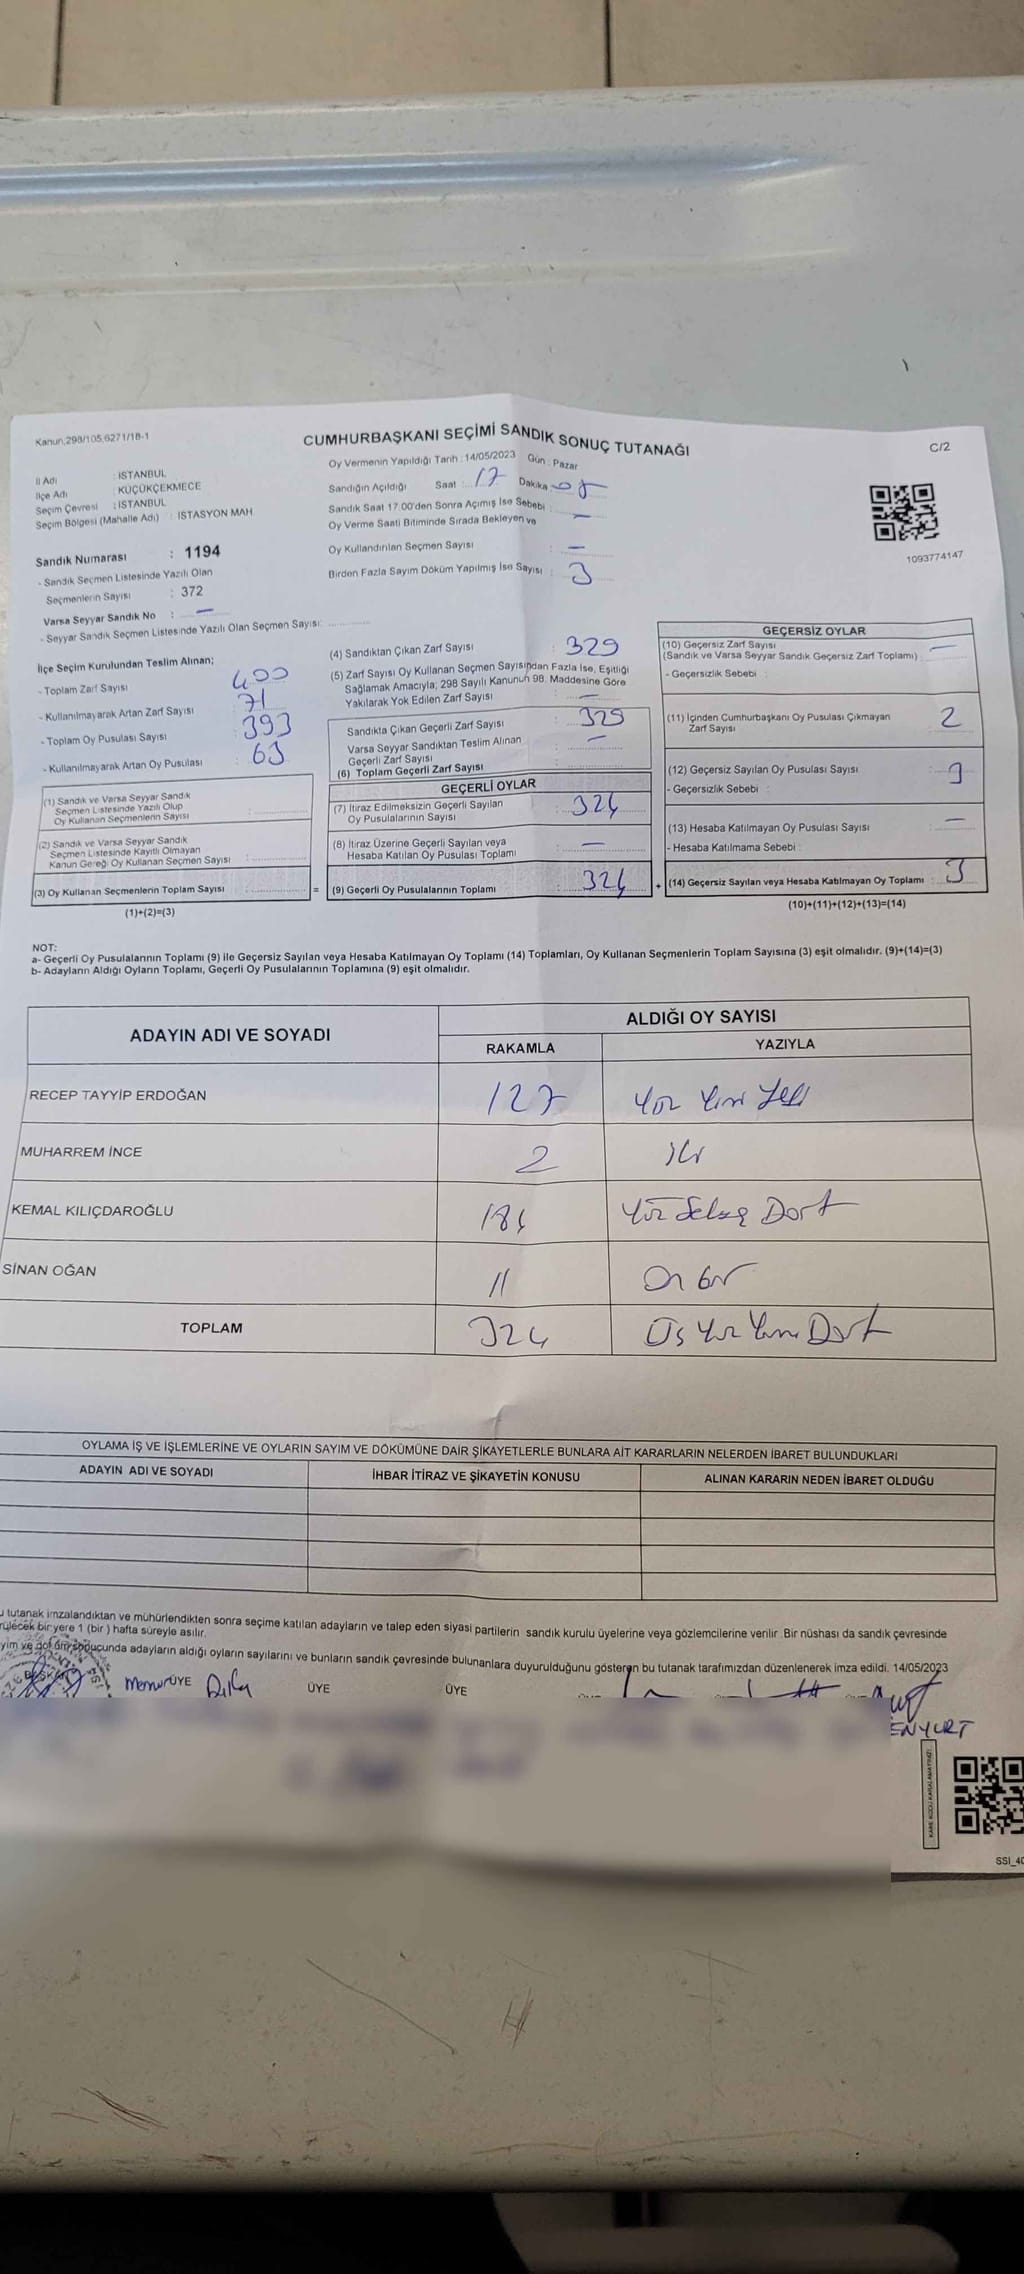 Kanun,298/105,6271/18-1
CUMHURBAŞKANI SEÇİMİ SANDIK SONUÇ TUTANAĞI
C/2
İl Adı : İSTANBUL
İlçe Adı : KÜÇÜKÇEKMECE
Seçim Çevresi : İSTANBUL
Seçim Bölgesi (Mahalle Adı) : İSTASYON MAH
Oy Vermenin Yapıldığı Tarih : 14/05/2023 Gün : Pazar
Sandığın Açıldığı Saat : 17 Dakika
Sandık Saat 17.00'den Sonra Açımış İse Sebebi : —
Oy Verme Saati Bitiminde Sırada Bekleyen ve
Oy Kullandırılan Seçmen Sayısı : —
Birden Fazla Sayım Döküm Yapılmış İse Sayısı : 3
1093774147
Sandık Numarası : 1194
- Sandık Seçmen Listesinde Yazılı Olan
Seçmenlerin Sayısı : 372
Varsa Seyyar Sandık No : —
- Seyyar Sandık Seçmen Listesinde Yazılı Olan Seçmen Sayısı:
İlçe Seçim Kurulundan Teslim Alınan;
- Toplam Zarf Sayısı : 400
- Kullanılmayarak Artan Zarf Sayısı : 71
- Toplam Oy Pusulası Sayısı : 393
- Kullanılmayarak Artan Oy Pusulası : 63
(1) Sandık ve Varsa Seyyar Sandık
Seçmen Listesinde Yazılı Olup
Oy Kullanan Seçmenlerin Sayısı :
(2) Sandık ve Varsa Seyyar Sandık
Seçmen Listesinde Kayıtlı Olmayan
Kanun Gereği Oy Kullanan Seçmen Sayısı :
(3) Oy Kullanan Seçmenlerin Toplam Sayısı : =
(1)+(2)=(3)
(4) Sandıktan Çıkan Zarf Sayısı : 329
(5) Zarf Sayısı Oy Kullanan Seçmen Sayısından Fazla İse, Eşitliği
Sağlamak Amacıyla; 298 Sayılı Kanunun 98. Maddesine Göre
Yakılarak Yok Edilen Zarf Sayısı : —
Sandıkta Çıkan Geçerli Zarf Sayısı : 329
Varsa Seyyar Sandıktan Teslim Alınan
Geçerli Zarf Sayısı : —
(6) Toplam Geçerli Zarf Sayısı :
GEÇERLİ OYLAR
(7) İtiraz Edilmeksizin Geçerli Sayılan
Oy Pusulalarının Sayısı : 324
(8) İtiraz Üzerine Geçerli Sayılan veya
Hesaba Katılan Oy Pusulası Toplamı : —
(9) Geçerli Oy Pusulalarının Toplamı : 324 +
GEÇERSİZ OYLAR
(10) Geçersiz Zarf Sayısı
(Sandık ve Varsa Seyyar Sandık Geçersiz Zarf Toplamı) : —
- Geçersizlik Sebebi :
(11) İçinden Cumhurbaşkanı Oy Pusulası Çıkmayan
Zarf Sayısı : 2
(12) Geçersiz Sayılan Oy Pusulası Sayısı : 3
- Geçersizlik Sebebi :
(13) Hesaba Katılmayan Oy Pusulası Sayısı : —
- Hesaba Katılmama Sebebi :
(14) Geçersiz Sayılan veya Hesaba Katılmayan Oy Toplamı : 3
(10)+(11)+(12)+(13)=(14)
NOT:
a- Geçerli Oy Pusulalarının Toplamı (9) ile Geçersiz Sayılan veya Hesaba Katılmayan Oy Toplamı (14) Toplamları, Oy Kullanan Seçmenlerin Toplam Sayısına (3) eşit olmalıdır. (9)+(14)=(3)
b- Adayların Aldığı Oyların Toplamı, Geçerli Oy Pusulalarının Toplamına (9) eşit olmalıdır.
ADAYIN ADI VE SOYADI
ALDIĞI OY SAYISI
RAKAMLA YAZIYLA
RECEP TAYYİP ERDOĞAN 127 Yüz Yirmi Yedi
MUHARREM İNCE 2 iki
KEMAL KILIÇDAROĞLU 184 Yüz Seksen Dört
SİNAN OĞAN 11 On bir
TOPLAM 324 Üç Yüz Yirmi Dört
OYLAMA İŞ VE İŞLEMLERİNE VE OYLARIN SAYIM VE DÖKÜMÜNE DAİR ŞİKAYETLERLE BUNLARA AİT KARARLARIN NELERDEN İBARET BULUNDUKLARI
ADAYIN ADI VE SOYADI İHBAR İTİRAZ VE ŞİKAYETİN KONUSU ALINAN KARARIN NEDEN İBARET OLDUĞU
u tutanak imzalandıktan ve mühürlendikten sonra seçime katılan adayların ve talep eden siyasi partilerin sandık kurulu üyelerine veya gözlemcilerine verilir. Bir nüshası da sandık çevresinde
rülecek bir yere 1 (bir) hafta süreyle asılır.
yım ve döküm sonucunda adayların aldığı oyların sayılarını ve bunların sandık çevresinde bulunanlara duyurulduğunu gösteren bu tutanak tarafımızdan düzenlenerek imza edildi. 14/05/2023
BAŞKAN Memur ÜYE ÜYE ÜYE
ENYURT
SSİ_40